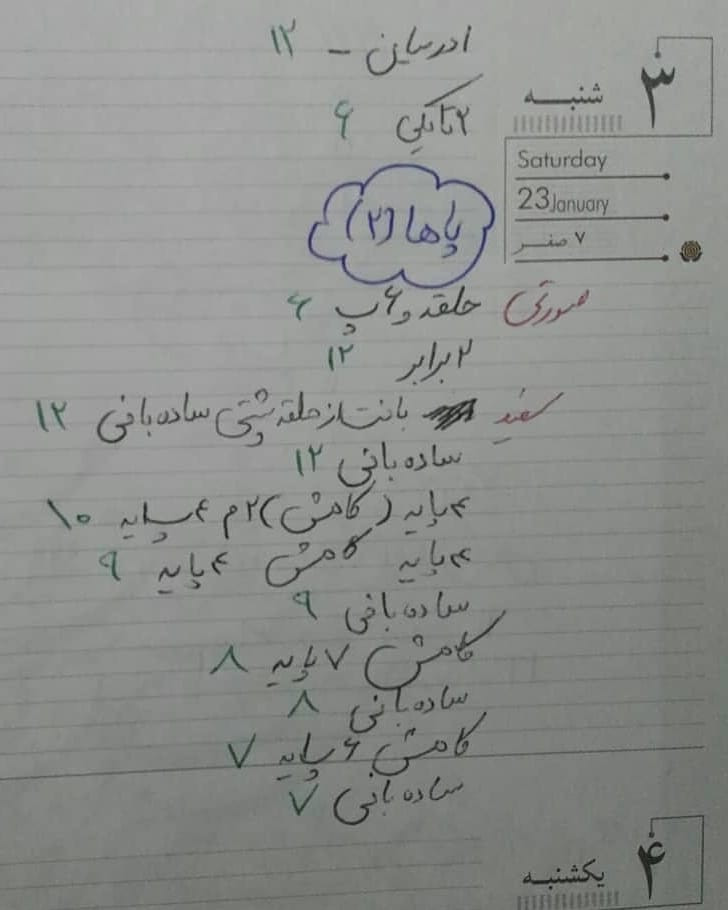 ۳
شنبه
Saturday
23 January
۷ صفر
ادرساین - ۱۲
۲تاتکی ۶
پاها (۲)
صورتی حلقه و ۶پ ۶
۲برابر ۱۲
سفید بافت از حلقه پشتی ساده بافی ۱۲
ساده بافی ۱۲
۴پایه (کاهش) ۲م ۴پایه ۱۰
۴پایه کاهش ۴پایه ۹
ساده بافی ۹
کاهش ۷پایه ۸
ساده بافی ۸
کاهش ۶پایه ۷
ساده بافی ۷
۴
یکشنبه